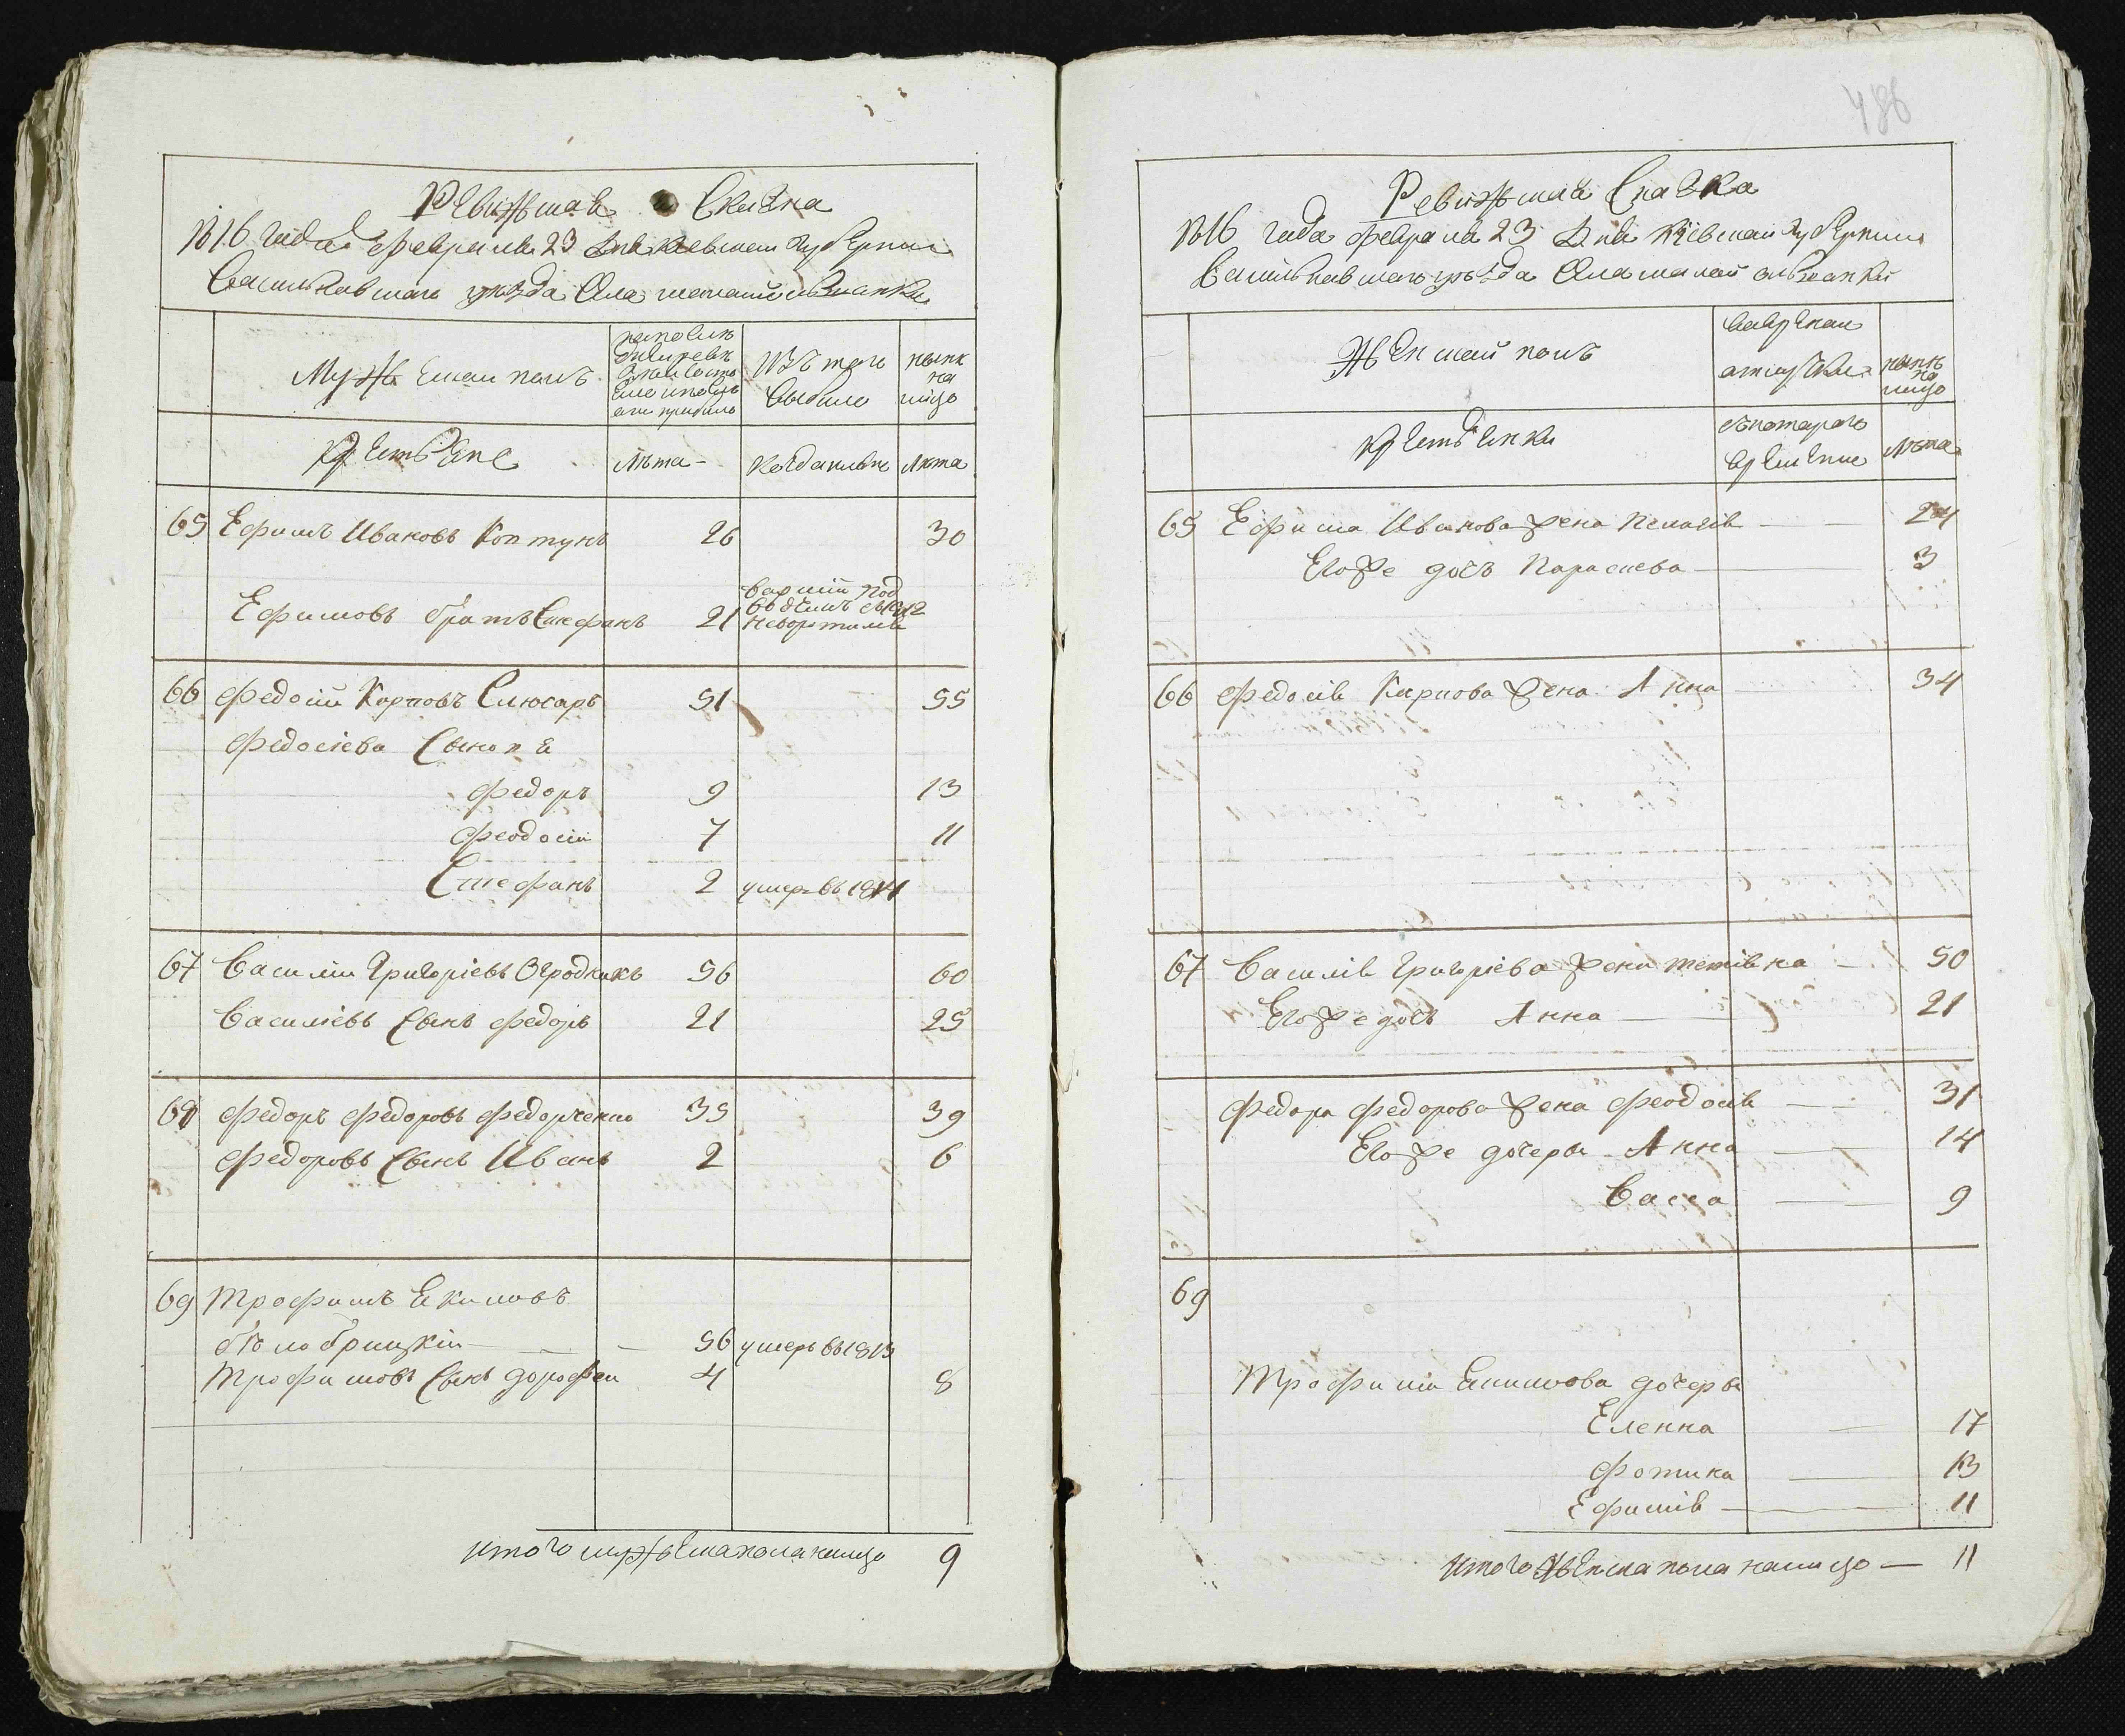 Ревижская Сказка
1816 года Февраля 23 дня Киевской Губернии
Васильковскаго уезда Села малой ольшанки
Мужеской полъ
по последней ревизіи состояло и после оной прибыло
Изъ того выбыло
ныне на лицо
Крестьяне
Лѣта
когда имянно
Лѣта
65 Ефимъ Ивановъ Коптунъ 26 30
Ефимовъ братъ Стефанъ 21 невортился
66 Федосій Карповъ Слюсаръ 51 55
Федосіева Сыновя
Федоръ 9 13
Феодосій 7 11
Стефанъ 2 умеръ въ 1814
67 Василій Григоріевъ Огродникъ 56 60
Василіевъ Сынъ Федоръ 21 25
68 Федоръ Федоровъ Федорченко 35 39
Федоровъ Сынъ Иванъ 2 6
69 Трофимъ Екимовъ
бѣлобрицкій — — 56 умеръ въ 1813
Трофимовъ Сынъ дорофей 4 8
итого мужеска пола налицо 9
486
Ревижская Сказка
1816 года февраля 23 дня Кіевской Губерніи
Васильковскаго уѣзда Села малой ольшанки
Женской полъ
вовременной отлучке
ныне на лицо
Крестьянки
съкотораго времени
Лѣта
65 Ефима Иванова жена Пелагія — — 24
Егоже дочъ Параскева — 3
66 Федосія Карпова жена Анна — 34
67 Василія Григоріева жена — 50
Егоже дочъ Анна — 21
Федора Федорова жена Феодосія — 31
Егоже дочеры Анна — 14
Васса — 9
69
Трофима Екимова дочеры
Еленна — 17
Фотина — 13
Ефимія — 11
итого женска пола налицо — 11